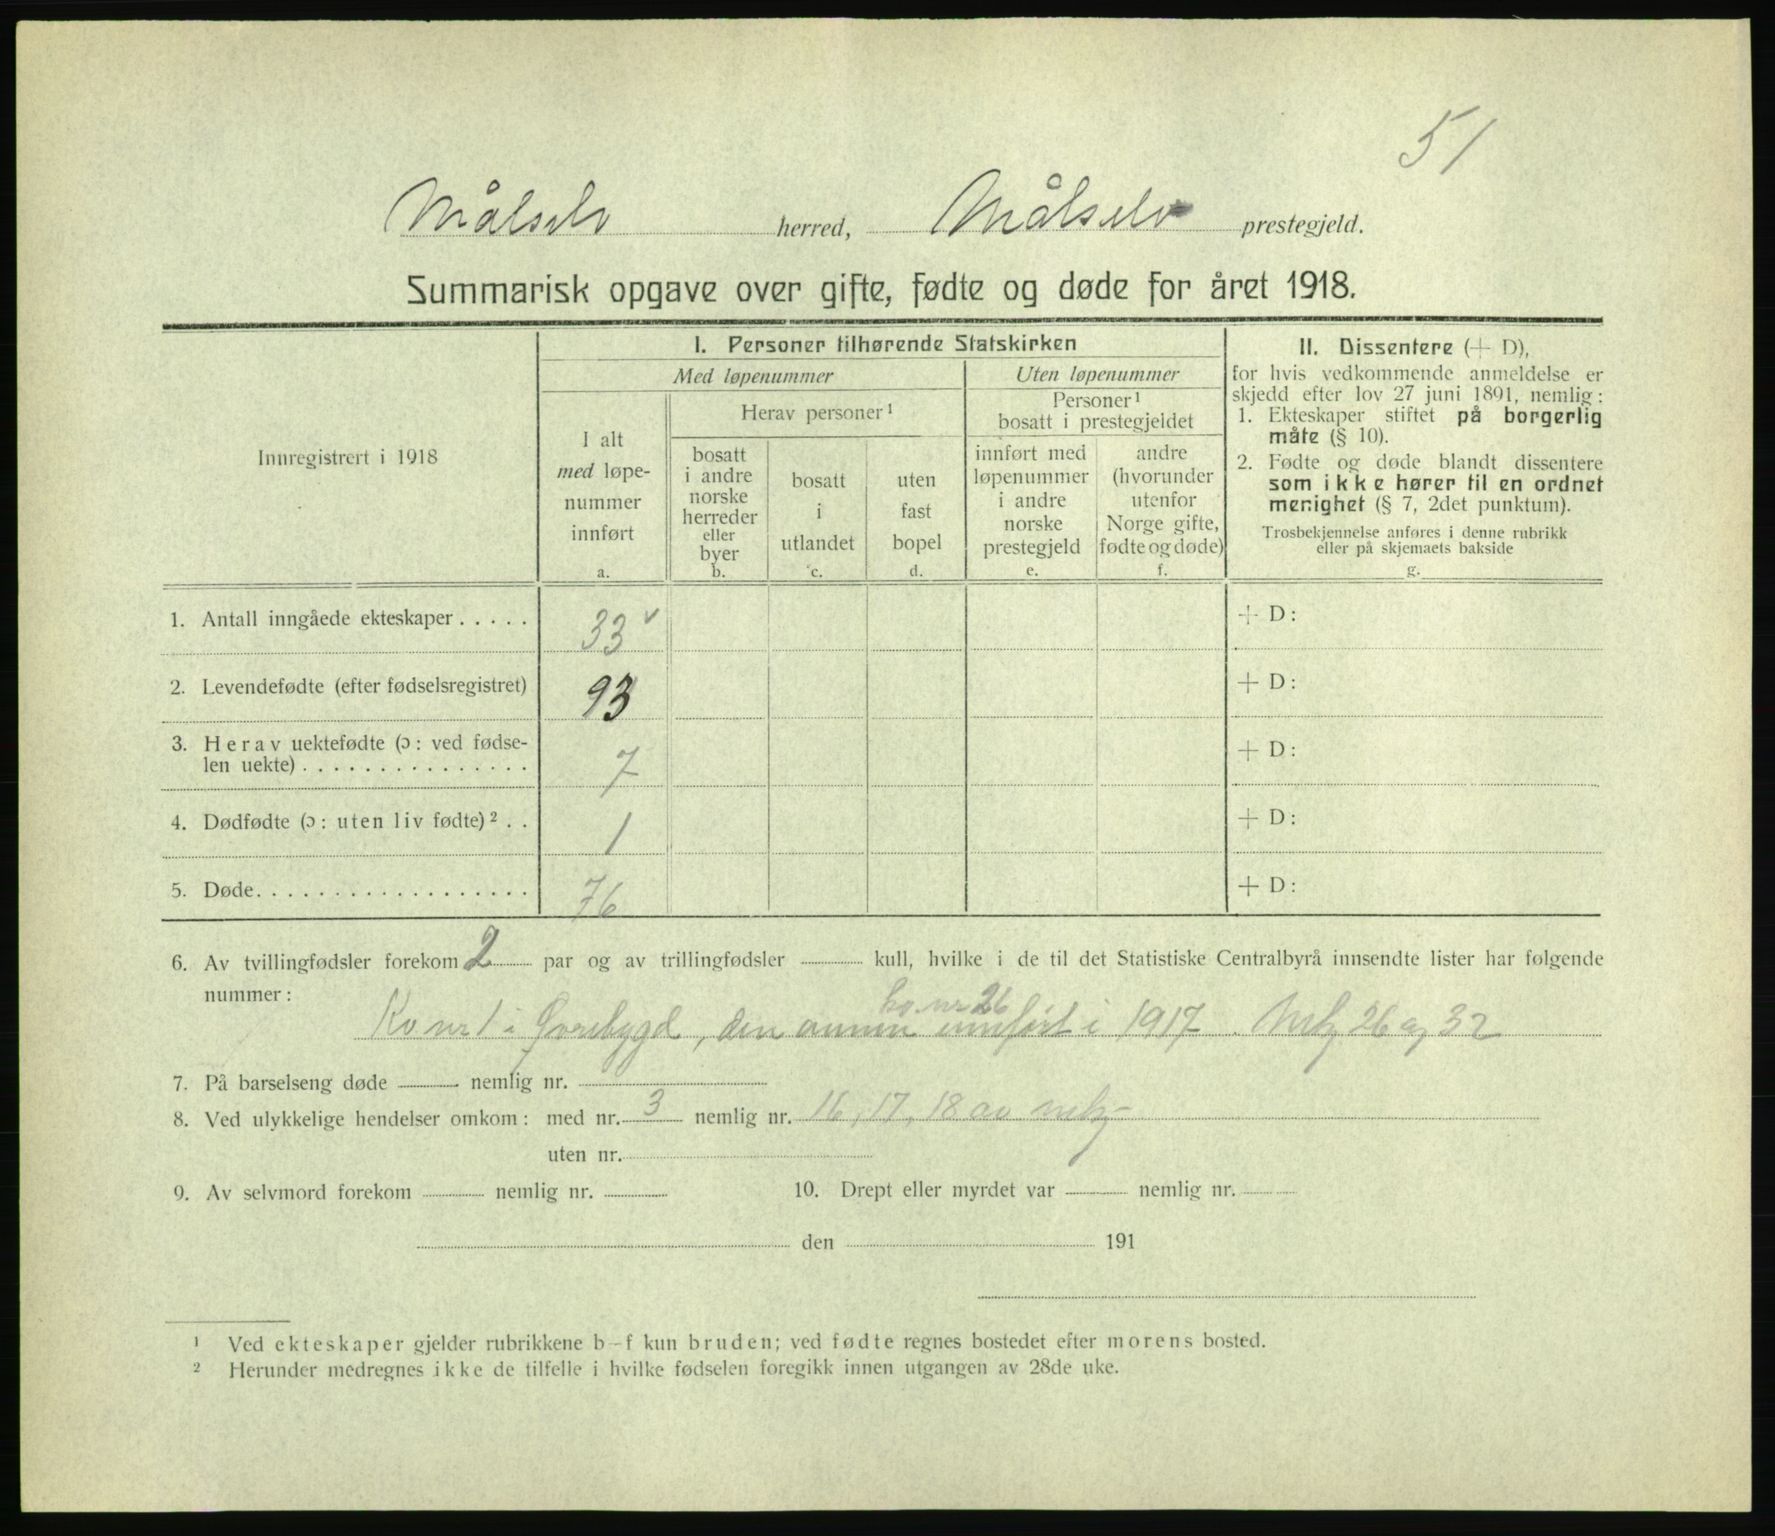 51
Målselv herred, Målselv prestegjeld.
Summarisk opgave over gifte, fødte og døde for året 1918.
Innregistrert i 1918
I. Personer tilhørende Statskirken
Med løpenummer
Uten løpenummer
I alt
med løpe-
nummer
innført
a.
Herav personer¹
bosatt
i andre
norske
herreder
eller
byer
b.
bosatt
i
utlandet
c.
uten
fast
bopel
d.
Personer¹
bosatt i prestegjeldet
innført med
løpenummer
i andre
norske
prestegjeld
e.
andre
(hvorunder
utenfor
Norge gifte,
fødte og døde)
f.
II. Dissentere (+ D),
for hvis vedkommende anmeldelse er
skjedd efter lov 27 juni 1891, nemlig:
1. Ekteskaper stiftet på borgerlig
måte (§ 10).
2. Fødte og døde blandt dissentere
som ikke hører til en ordnet
menighet (§ 7, 2det punktum).
Trosbekjennelse anføres i denne rubrikk
eller på skjemaets bakside
g.
1. Antall inngåede ekteskaper . . . . . 33 ✓ + D:
2. Levendefødte (efter fødselsregistret) 93 + D:
3. Herav uektefødte (ɔ: ved fødse-
len uekte) . . . . . . . . . . . . . . . 7 + D:
4. Dødfødte (ɔ: uten liv fødte)² . . 1 + D:
5. Døde. . . . . . . . . . . . . . . . . . 76 + D:
6. Av tvillingfødsler forekom 2 par og av trillingfødsler kull, hvilke i de til det Statistiske Centralbyrå innsendte lister har følgende
nummer:
ko nr 26
Ko nr 1 i Øvrebygd, den annen innført i 1917. Mlg 26 og 32
7. På barselseng døde nemlig nr.
8. Ved ulykkelige hendelser omkom: med nr. 3 nemlig nr. 16, 17, 18 av mlg
uten nr.
9. Av selvmord forekom nemlig nr. 10. Drept eller myrdet var nemlig nr.
den 191
¹ Ved ekteskaper gjelder rubrikkene b–f kun bruden; ved fødte regnes bostedet efter morens bosted.
² Herunder medregnes ikke de tilfelle i hvilke fødselen foregikk innen utgangen av 28de uke.